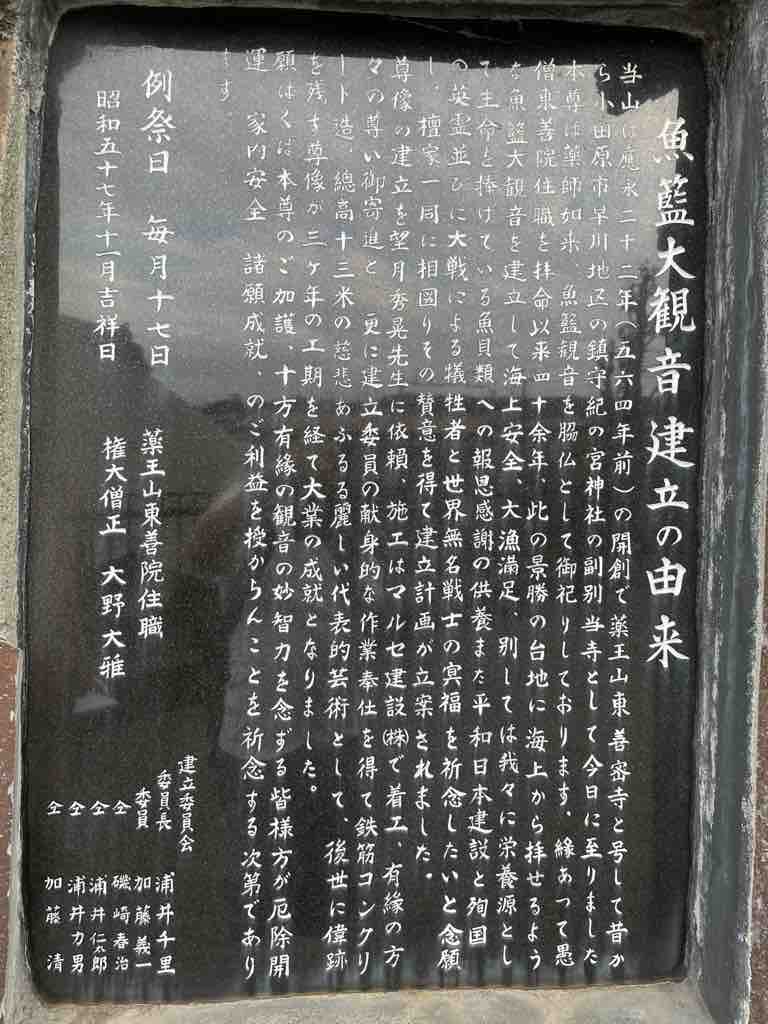 魚籃大観音建立の由来
当山は應永二十二年(五六四年前)の開創で薬王山東善寺と号して昔か
ら小田原市早川地区の鎮守紀の宮神社の副別当寺として今日に至りました
本尊は薬師如来、魚籃観音を脇仏として御祀りしております。縁あって愚
僧東善院住職を拝命以来四十余年、此の景勝の台地に海上から拝せるよう
な魚籃大観音を建立して海上安全、大漁満足、別しては我々に栄養源とし
て生命を捧げている魚貝類への報恩感謝の供養また平和日本建設と殉国
の英霊並びに大戦による犠牲者と世界無名戦士の冥福を祈念したいと念願
し、檀家一同に相図りその賛意を得て建立計画が立案されました。
尊像の建立を望月秀晃先生に依頼、施工はマルセ建設㈱で着工、有縁の方
々の尊い御寄進と、更に建立委員の献身的な作業奉仕を得て鉄筋コンクリ
ート造、總高十三米の慈悲あふるる麗しい代表的芸術として、後世に偉跡
を残す尊像が三ケ年の工期を経て大業の成就となりました。
願はくば本尊のご加護、十方有縁の観音の妙智力を念ずる皆様方が厄除開
運、家内安全、諸願成就、のご利益を授からんことを祈念する次第であり
ます。
例祭日 毎月十七日
昭和五十七年十一月吉祥日
薬王山東善院住職
権大僧正 大野大雅
建立委員会
委員長 浦井千里
委員 加藤義一
仝 磯崎春治
仝 浦井仁太郎
仝 浦井力男
仝 加藤清